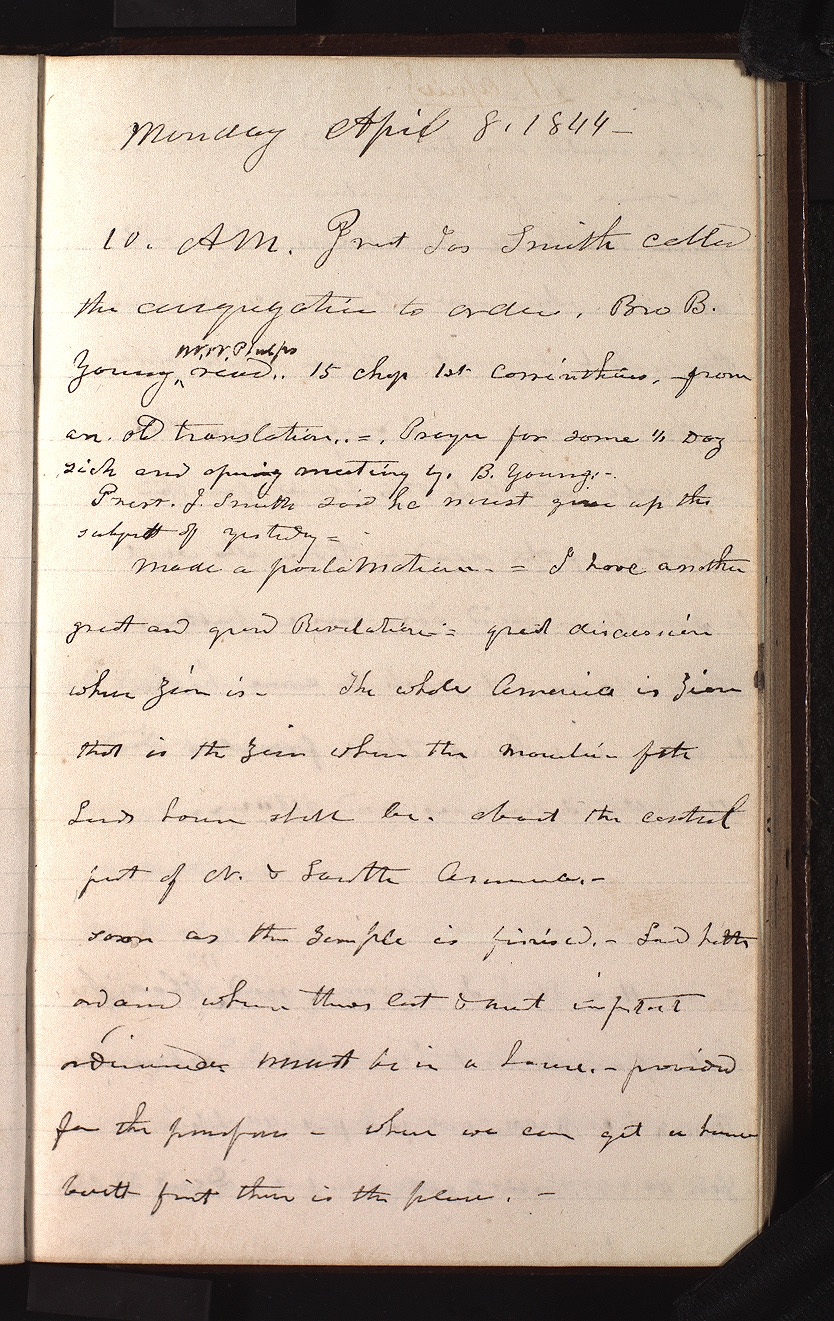 Monday April 8. 1844—
10. AM. Prest Jos Smith called
the congregation to order. Bro B.
W.W. Phelps
Young, ‸ read.. 15 chap 1st Corinthians, from
an. old translation..=. Prayer for some
sick and opening meeting by. B. Young.-
Prest. J. Smith said he must give up the
subject of yesterday =
Made a proclamation.- = I have another
great and grand Revelation-= great discussion
where Zion is- The whole America is Zion
that is the Zion where the mountain of the
Lords house shall be. about the central
part of N. & South America.-
soon as the Temple is finised.- Lord hath
ordaind where these last & most importat
ordinances must be in a house.- provided
for the purpose - when we can get a house
built first there is the place. -